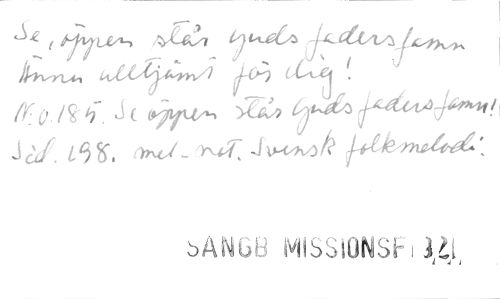 Se, öppen står Guds fadersfamn
Ännu alltjämt för dig!
N:o. 185. Se öppen står Guds fadersfamn!
Sid. 198. mel. not. Svensk folkmelodi.
SANGB MISSIONSF